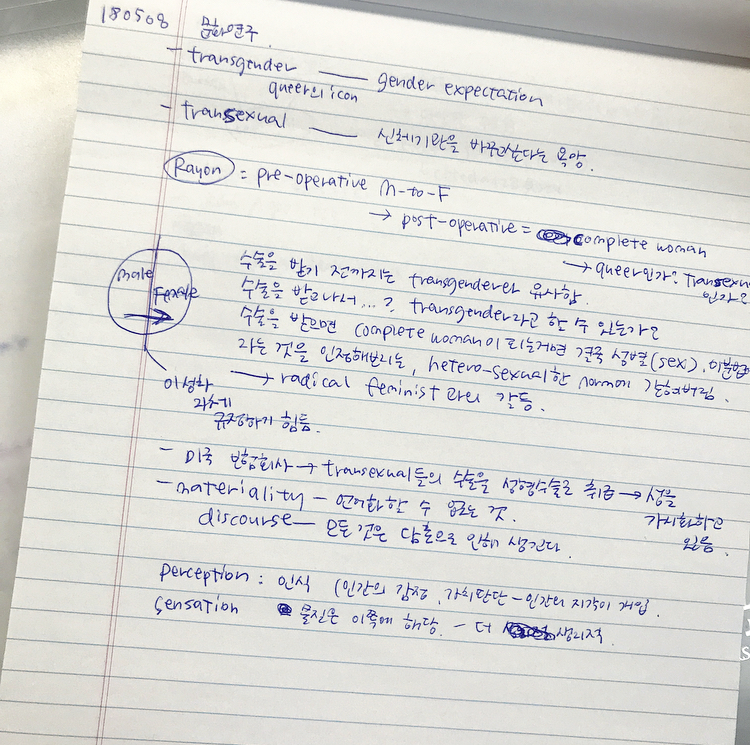 180508 문화연구.
- transgender —— gender expectation
queer의 icon
- transsexual —— 신체기관을 바꾸고싶다는 욕망.
Rayon = pre-operative M-to-F
→ post-operative = complete woman
→ queer인가? Transexu
인가요
수술을 받기 전까지는 transgender와 유사함.
수술을 받고나서...? transgender라고 할 수 있는가?
수술을 받으면 complete woman이 되는거면 결국 성별(sex), 이분법
라는 것을 인정해버리는, hetero-sexual한 norm에 갇혀버림.
→ radical feminist 과의 갈등.
male
Female
이성화
자체가
규정하기 힘듦.
- 미국 보험회사 → transexual들의 수술을 성형수술로 취급 → 성을
가시화하고
있음
- materiality - 언어화할 수 없는 것.
discourse — 모든 것은 담론으로 인해 생긴다.
perception : 인식 (인간의 감정, 가치판단 - 인간의 지각이 개입.
sensation 물질은 이쪽에 해당. - 더 생리적